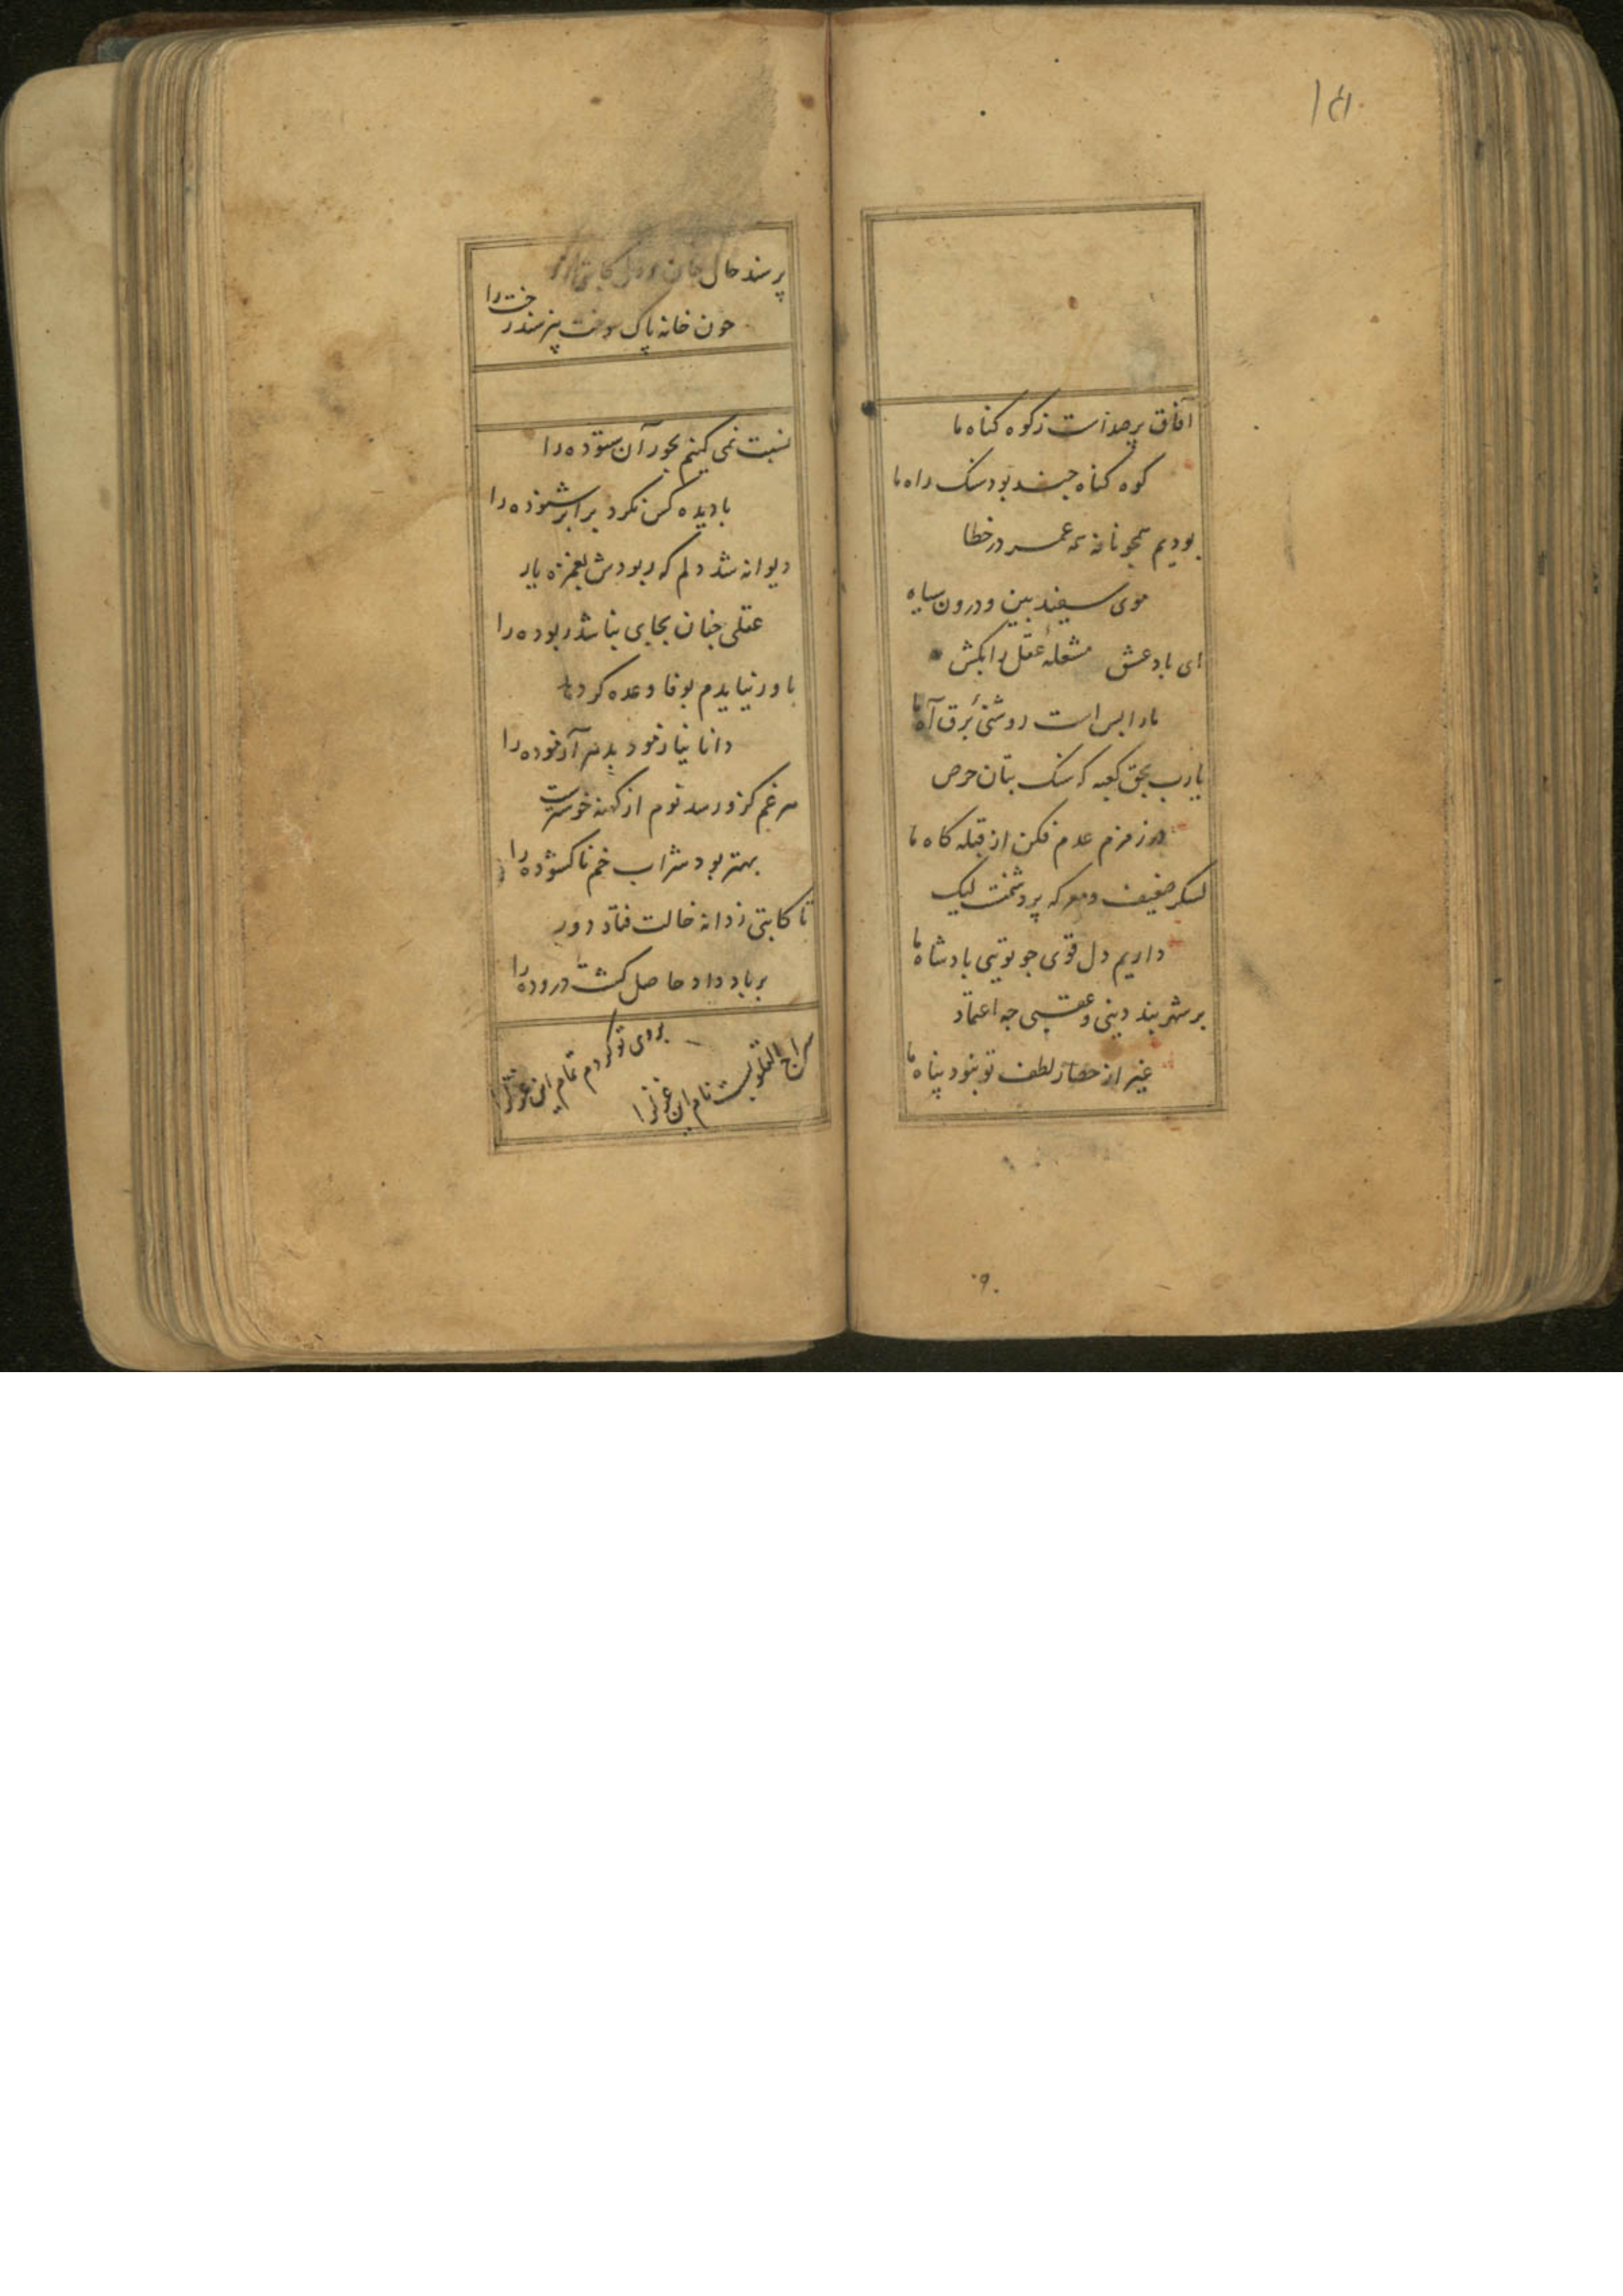 آفاق پر صداست ز کوه گناه ما
کوه گناه چند بود سنگ راه ما
بودیم همچو نافه همه عمر در خطا
موی سفید بین و درون سیاه
ای باد عشق مشعله عقل را بکش
ما را بس است روشنی برق آه ما
یارب بحق کعبه که سنگ بتان حرص
در زمزم عدم فکن از قبله گاه ما
لشکر ضعیف و معرکه پر دشمنت لیک
داریم دل قوی چو تویی پادشاه ما
بر شهر بند دینی و عقبی چه اعتماد
غیر از حصار لطف تو نبود پناه ما
پرسند حال جان و دل کاتبی
چون خانه پاک سوخت نپرسند رخت را
نسبت نمی کنیم بحور آن ستوده را
با دیده کس نکرد برابر شنوده را
دیوانه شد دلم که ربودش بغمزه یار
عقلی چنان بجای نباشد ربوده را
باور نیایدم بوفا وعده کردنها
دانا نیازمود بدهر آزموده را
هر غم کزو رسد نوم از کهنه خوشترست
بهتر بود شراب خم ناگشوده را
تا کاتبی ز دانه خالت فتاد دور
بر باد داد حاصل کشت دروده را
سراج القلوبست نام این غزل را
بروی تو کردم تمام این غزل را